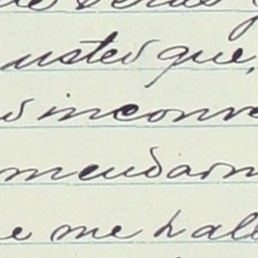 usted que,
inconve
mendarn
e me hall